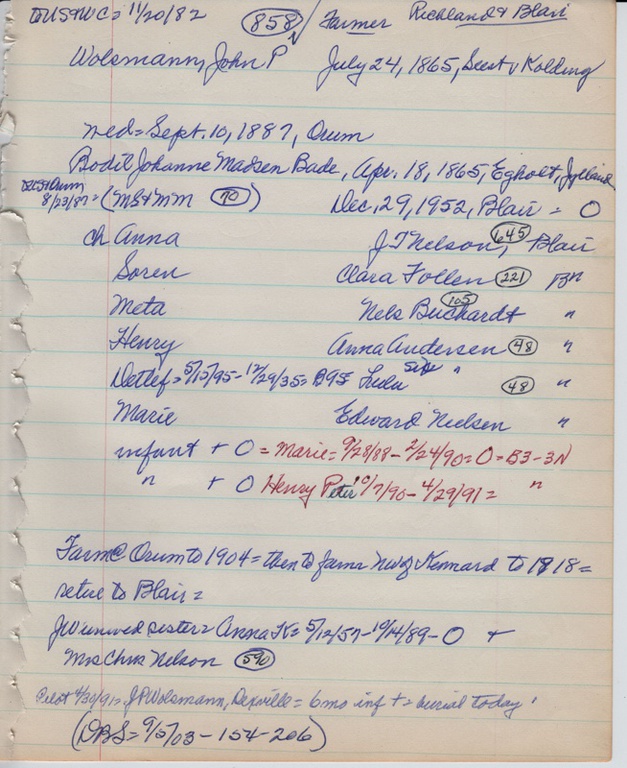 to US & WC = 11/20/82 858 / Farmer Richland & Blair
Wolsmann, John P July 24, 1865, Seest v Kolding
med = Sept. 10, 1887, Orum
Bodil Johanne Madsen Bade, Apr. 18, 1865, Egholt, Jylland
to US & Orum
8/23/87 = (MS & MM 70) Dec, 29, 1952, Blair = O
ch Anna J T Nelson, 645 Blair
Soren Clara Follen 221 Bn
Meta Nels Buchardt 105 "
Henry Anna Andersen 48 "
Detlef = 5/15/95 - 12/29/35 = B95 Lulu " 48 "
Marie Edward Nielsen "
infant + O = Marie = 9/28/88 - 2/24/90 = O = B3 - 3N
" + O Henry Peter 10/7/90 - 4/29/91 = "
Farm @ Orum to 1904 = then to farm NW of Kennard to 1918 =
retire to Blair =
JW unwed sister = Anna K = 5/12/57 - 10/14/89 - O +
Mrs Chris Nelson 590
Pilot 4/30/91 = J P Wolsmann, Dexville = 6 mo inf + = burial today'
(DBS = 9/5/03 - 154 - 206)